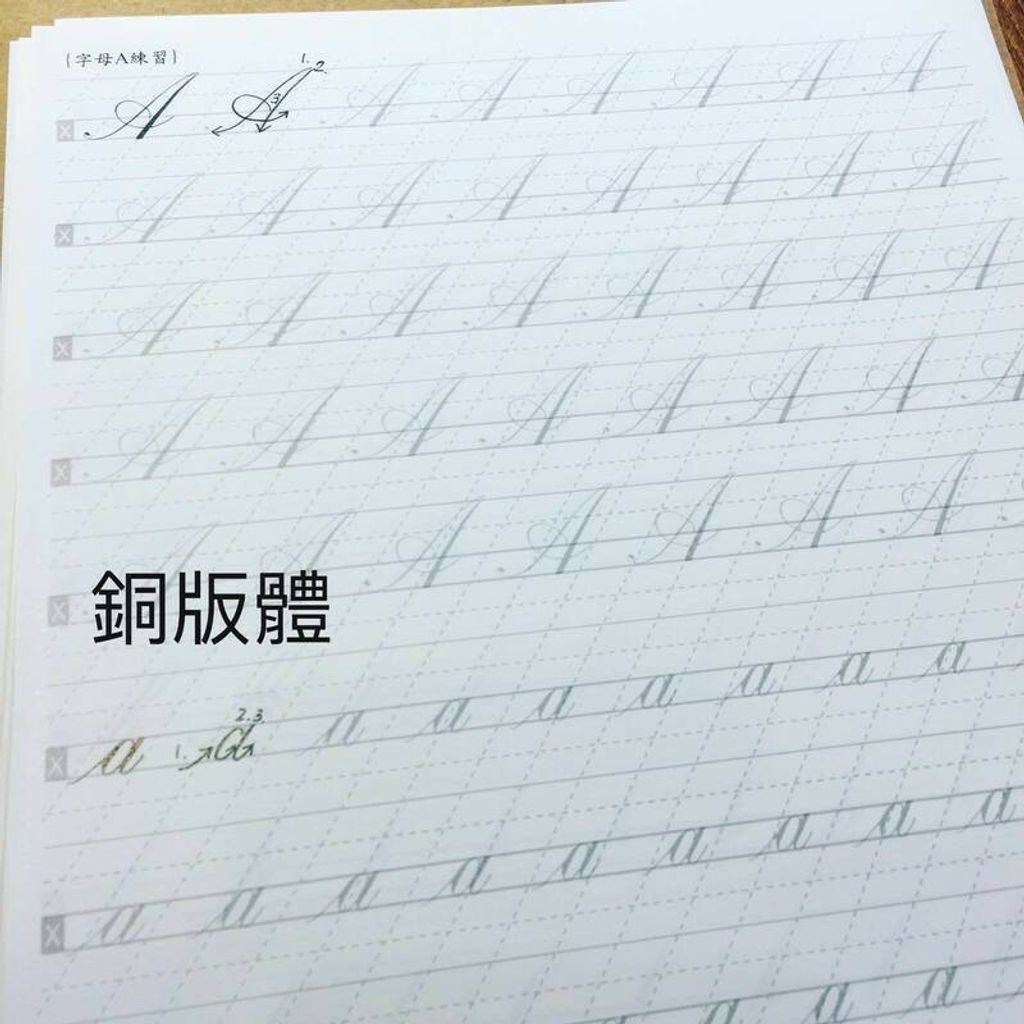 {字母A練習}
1. 2.
X A A 3 A A A A A A
X A A A A A A A A
X A A A A A A A A
X A A A A A A A A
X A A A A A A A
銅版體
2. 3.
X a 1. a a a a a a a a
X a a a a a a a a a
a a a